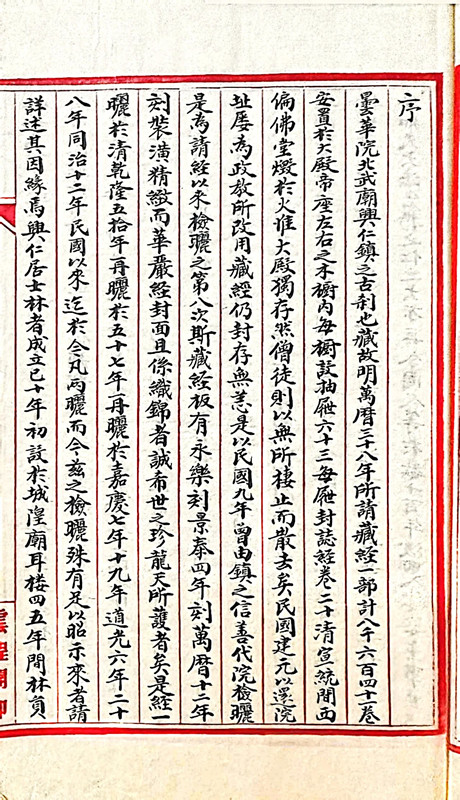 序
曇華院北武廟興仁鎮之古刹也藏故明萬曆三十八年所請藏經一部計八千六百四十一卷
安置於大殿帝座左右之木櫥内每櫥設抽屜六十三每屜封誌經卷二十清宣統間西
偏佛堂燬於火惟大殿獨存然僧徒則以無所棲止而散去矣民國建元以還院
址屢為政教所改用藏經仍封存無恙是以民國九年曾由鎮之信善代院檢曬
是為請經以來檢曬之第八次斯藏經板有永樂刻景泰四年刻萬曆十二年
刻裝潢精緻而華嚴經封面且係織錦者誠希世之珍龍天所護者矣是經一
曬於清乾隆五拾年再曬於五十七年再曬於嘉慶七年十九年道光六年二十
八年同治十二年民國以來迄於今凡兩曬而今茲之檢曬殊有足以昭示來者請
詳述其因緣焉興仁居士林者成立已十年初設於城隍廟耳樓四五年間林員